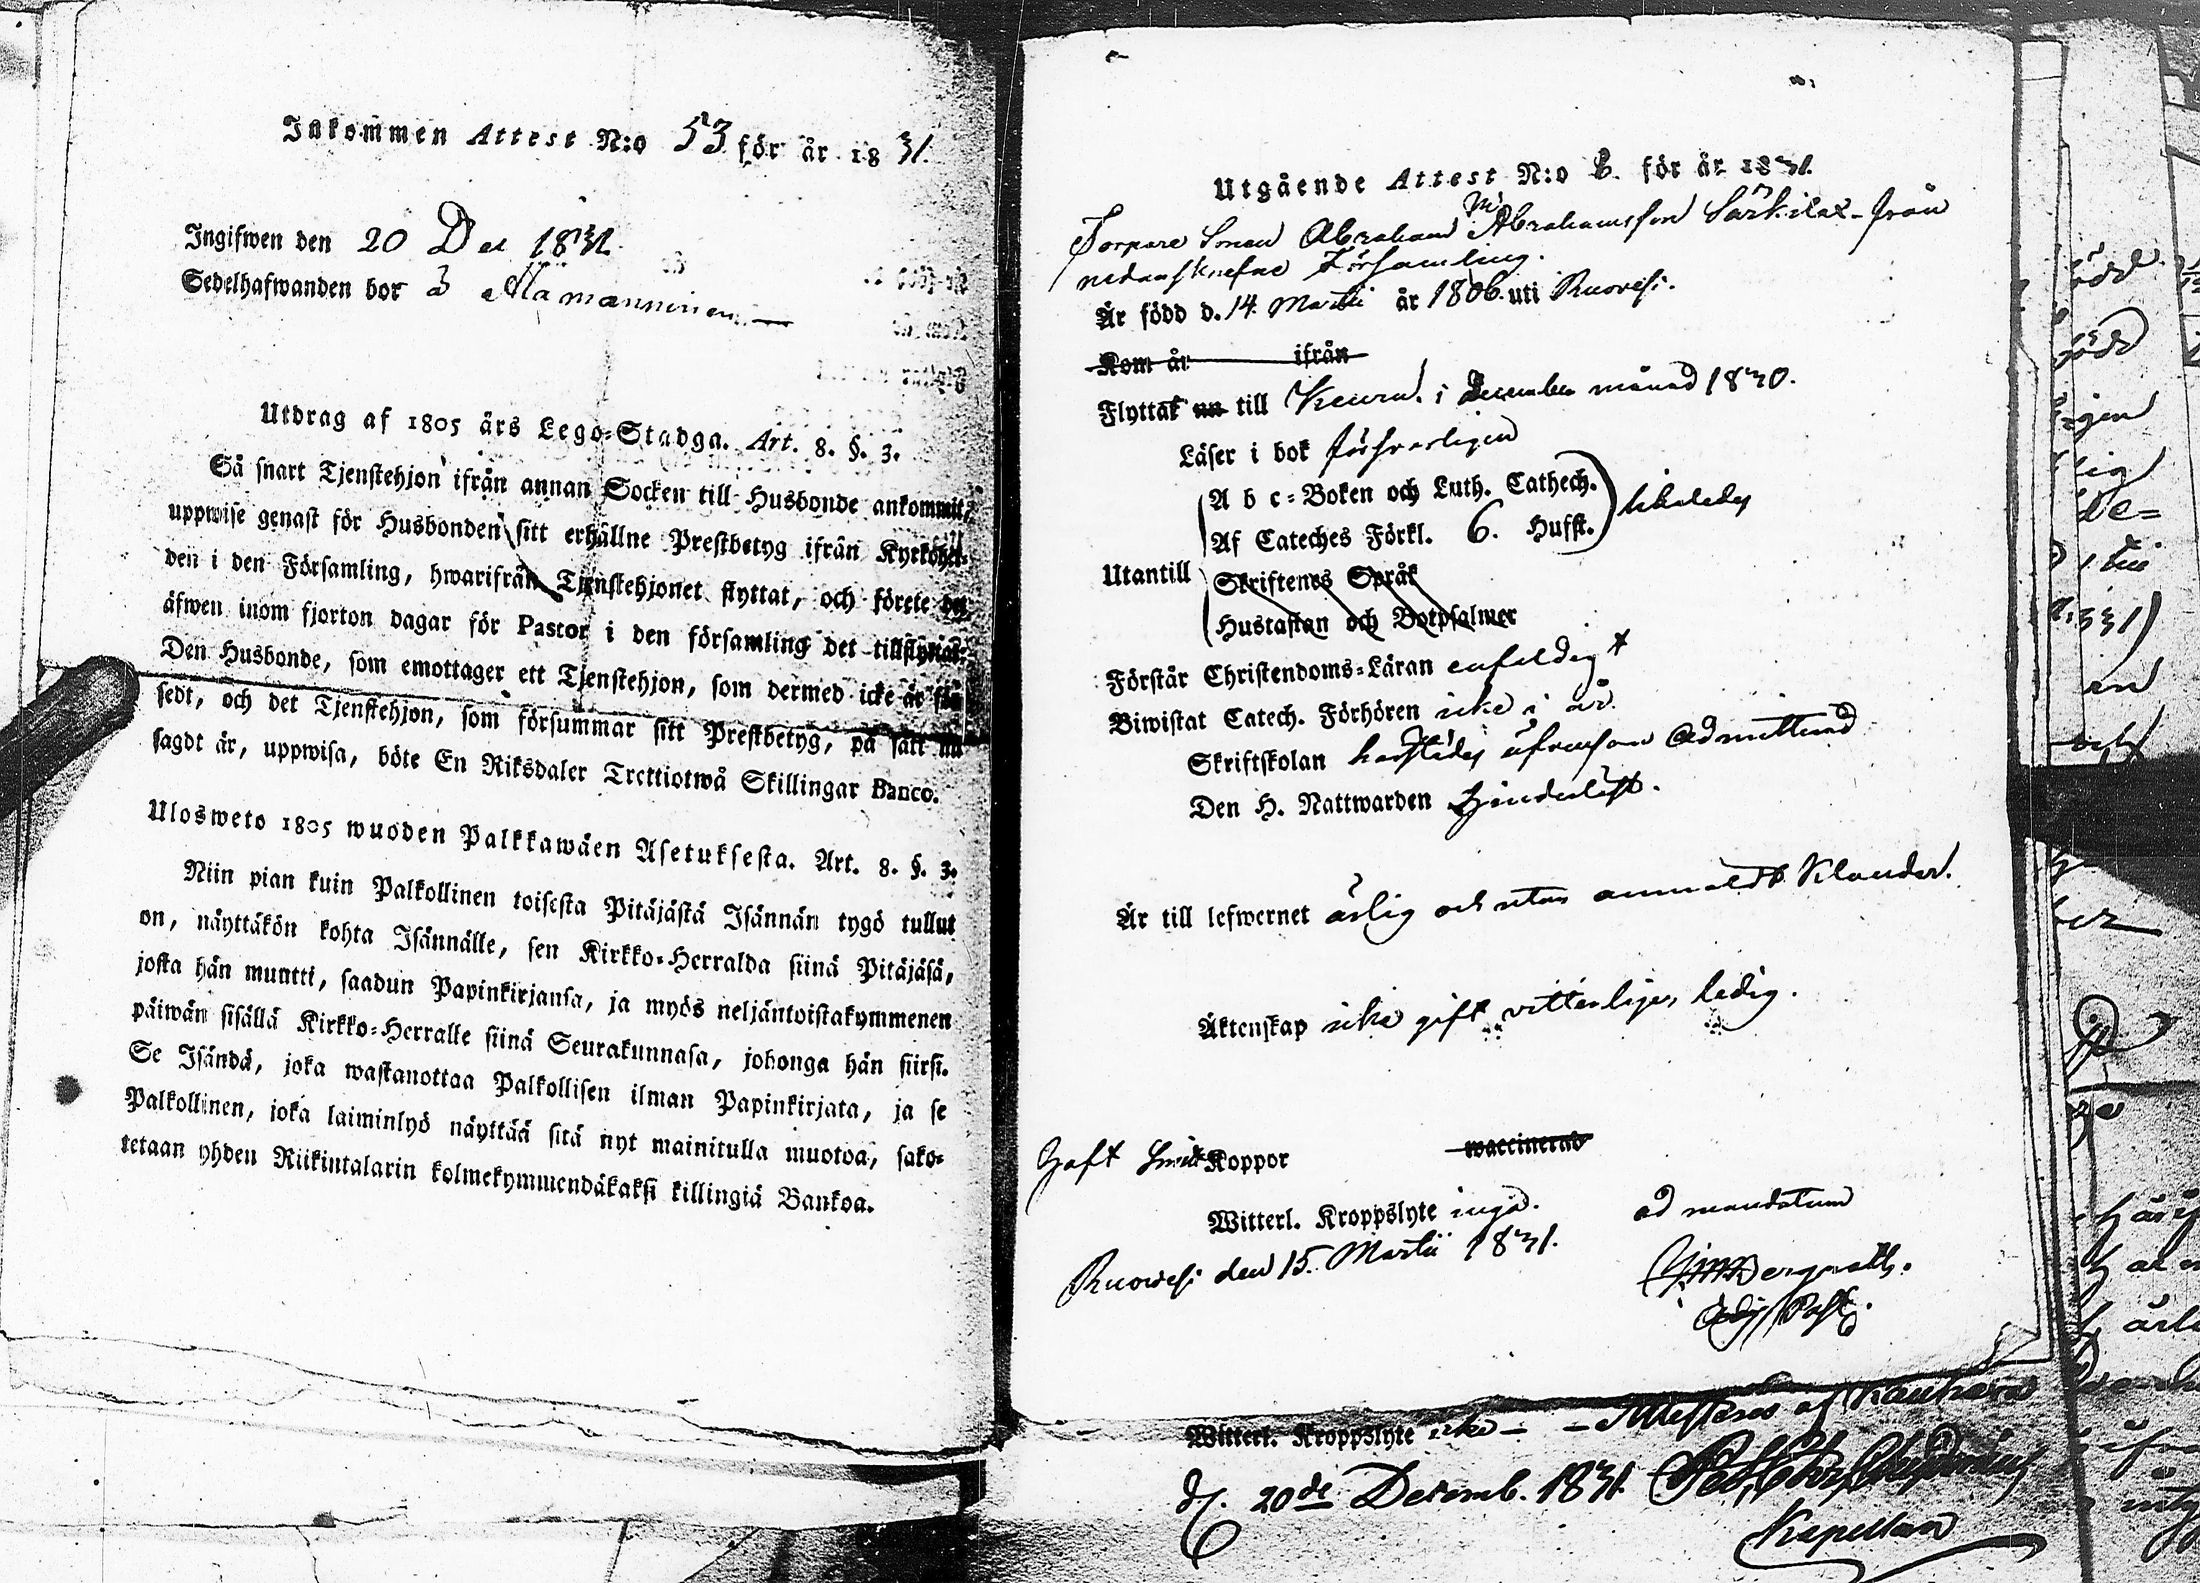 Inkommen Attest N:o 53 för år 1831.
Ingifwen den 20 Dec 1831.
Sedelhafwanden bor å Mämänninen
Utdrag af 1805 års Lego-Stadga. Art. 8. §. 3.
Så snart Tjenstehjon ifrån annan Socken till Husbonde ankommit,
uppwise genast för Husbonden sitt erhållne Prestbetyg ifrån Kyrkoher-
den i den Församling, hwarifrån Tjenstehjonet flyttat, och förete det
äfwen inom fjorton dagar för Pastor i den församling det tillflyttat.
Den Husbonde, som emottager ett Tjenstehjon, som dermed icke är för-
sedt, och det Tjenstehjon, som försummar sitt Prestbetyg, på sätt nu
sagdt är, uppwisa, böte En Riksdaler Trettiotwå Skillingar Banco.
Ulosweto 1805 wuoden Palkkawäen Asetuksesta. Art. 8. §. 3.
Niin pian kuin Palkollinen toisesta Pitäjästä Isännän tygö tullut
on, näyttäkön kohta Isännälle, sen Kirkko-Herralda siinä Pitäjäsä,
josta hän muutti, saadun Papinkirjansa, ja myös neljäntoistakymmenen
päiwän sisällä Kirkko-Herralle siinä Seurakunnasa, johonga hän siirsi.
Se Isändä, joka wastanottaa Palkollisen ilman Papinkirjata, ja se
Palkollinen, joka laiminlyö näyttää sitä nyt mainitulla muotoa, sako-
tetaan yhden Riikintalarin kolmekymmendäkaksi killingiä Bankoa.
Utgående Attest N:o 6. för år 1831.
Torpare Sonen Abraham Abrahamsson Särkilax från
nedanskrefne Församling.
Är född d. 14 Martii år 1806. uti Ruovesi.
Kom år ifrån
Flyttat nu till Keuru i December månad 1830.
Läser i bok försvarligen
A b c-Boken och Luth. Cathech.
Af Cateches Förkl. 6. Hufst. likaledes
Utantill
Skriftenes Språk
Hustaflan och Botpsalmer
Förstår Christendoms-Läran enfeldigt
Biwistat Catech. Förhören icke i år.
Skriftskolan härstädes äfvensom Admitterad
Den H. Nattwarden Hinderlöst.
Är till lefwernet ärlig och utan anmäldt klander.
Äktenskap icke gift vitterligen, ledig.
Haft Smitt Koppor waccinerad
Witterl. Kroppslyte inga. ad mandatum
Ruowesi den 15. Martii 1831.
Adj Past.
Witterl. Kroppslyte icke — Attesteras af
d. 20de Decemb. 1831.
Kapellan